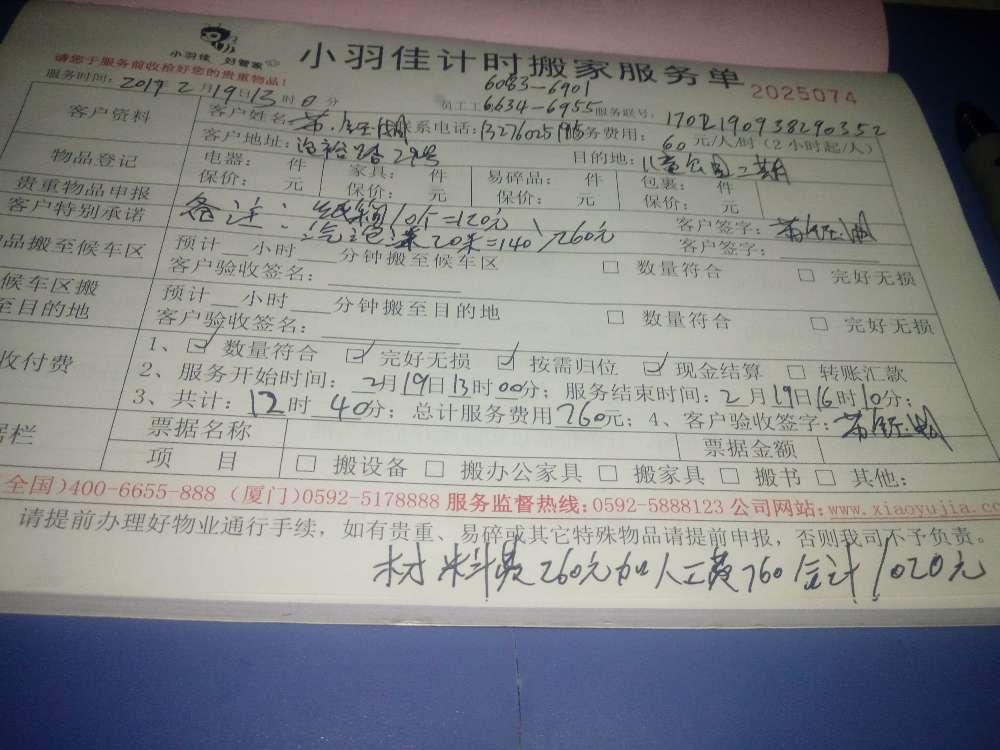 小羽佳 好管家
小羽佳计时搬家服务单
2025074
请您于服务前收拾好您的贵重物品!
服务时间: 2019 2月19日13时0分
6083-6901
员工工 6634-6955 服务联号: 170219093829 0352
客户资料
客户姓名: 联系电话: 服务费用: 60元/人/时(2小时起/人)
客户地址: 目的地: 儿童公园二期
物品登记
电器: 件 家具: 件 易碎品: 件 包裹: 件
保价: 元 保价: 元 保价: 元 保价: 元
贵重物品申报
备注: 纸箱10个=120元
客户签字:
客户特别承诺
汽泡膜20米=140 260元
客户签字:
品搬至候车区
预计 小时 分钟搬至候车区
客户验收签名: □ 数量符合 □ 完好无损
候车区搬
至目的地
预计 小时 分钟搬至目的地
客户验收签名: □ 数量符合 □ 完好无损
收付费
1、☑ 数量符合 ☑ 完好无损 ☑ 按需归位 ☑ 现金结算 □ 转账汇款
2、服务开始时间: 2月19日13时00分; 服务结束时间: 2月19日16时10分;
3、共计: 12时40分; 总计服务费用760元; 4、客户验收签字:
据栏
票据名称 票据金额
项 目 □ 搬设备 □ 搬办公家具 □ 搬家具 □ 搬书 □ 其他:
全国)400-6655-888 (厦门)0592-5178888 服务监督热线:0592-5888123 公司网站:www.xiaoyujia.co
请提前办理好物业通行手续，如有贵重、易碎或其它特殊物品请提前申报，否则我司不予负责。
材料费260元加人工费760合计1020元